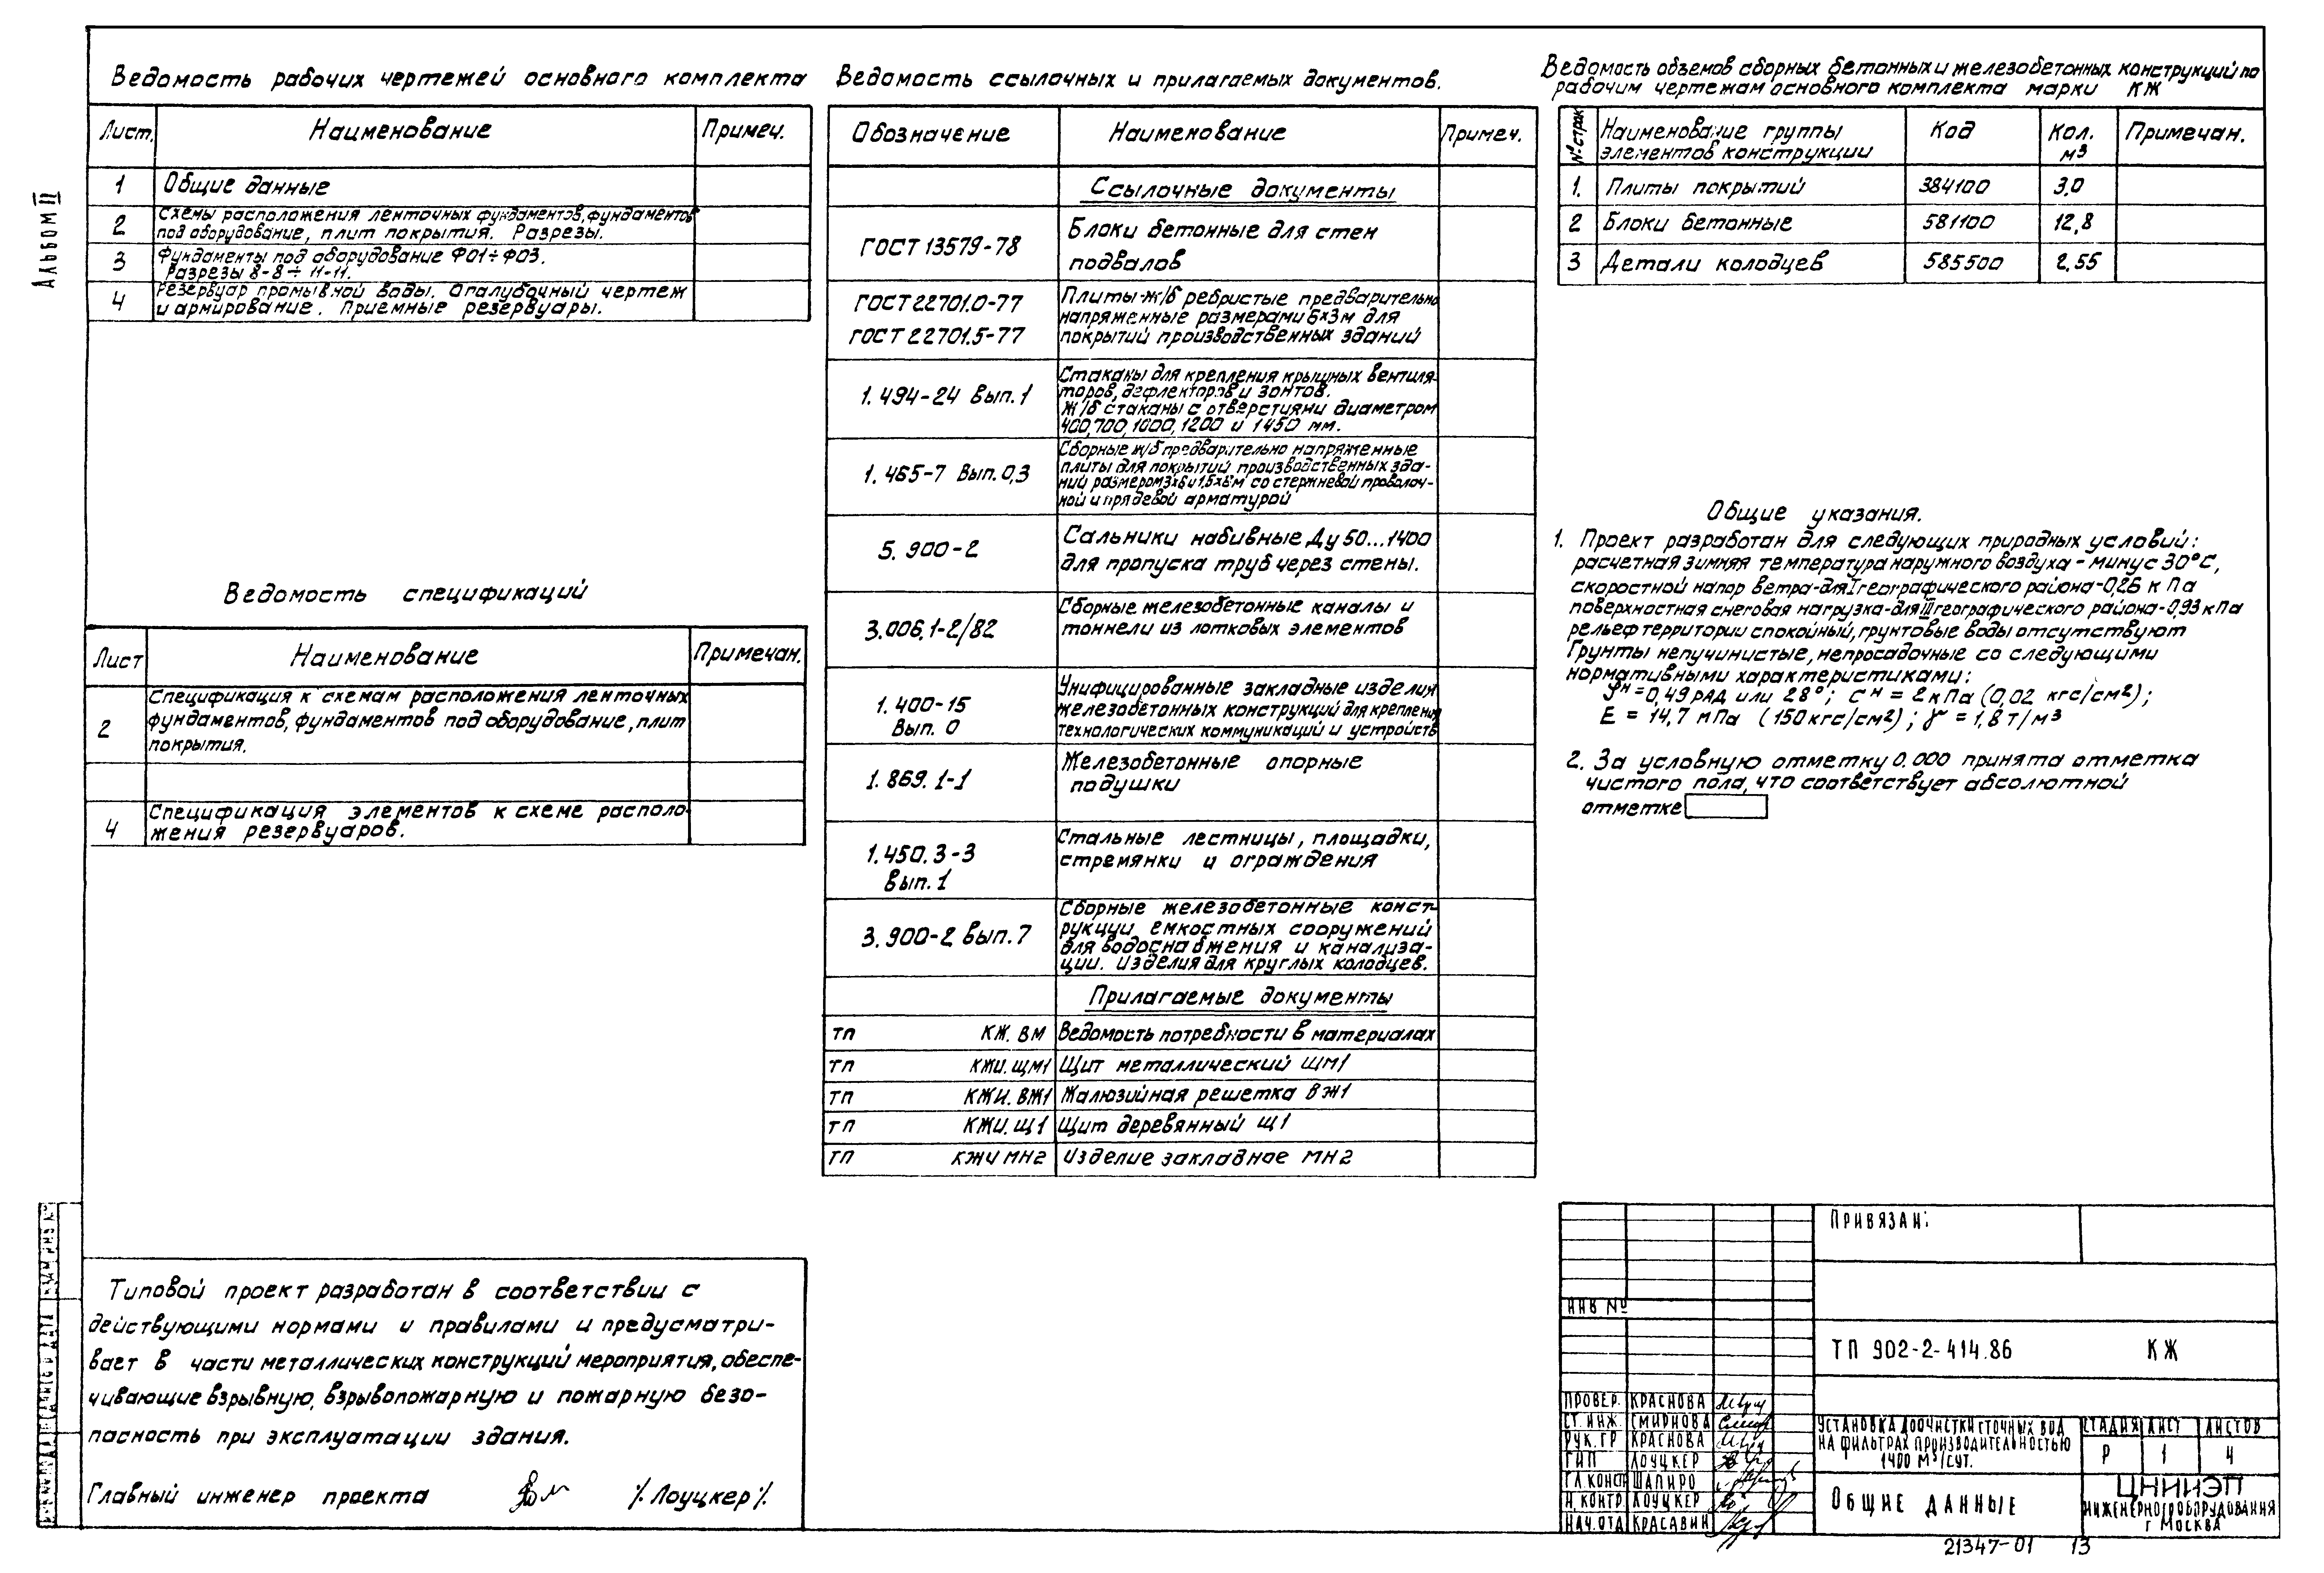 Альбом II
Ведомость рабочих чертежей основного комплекта
Лист. Наименование Примеч.
1 Общие данные
2 Схемы расположения ленточных фундаментов, фундаментов
под оборудование, плит покрытия. Разрезы.
3 Фундаменты под оборудование Ф01÷Ф03.
Разрезы 8-8 ÷ 11-11.
4 Резервуар промывной воды. Опалубочный чертеж
и армирование. Приемные резервуары.
Ведомость спецификаций
Лист Наименование Примечан.
2 Спецификация к схемам расположения ленточных
фундаментов, фундаментов под оборудование, плит
покрытия.
4 Спецификация элементов к схеме располо-
жения резервуаров.
Типовой проект разработан в соответствии с
действующими нормами и правилами и предусматри-
вает в части металлических конструкций мероприятия, обеспе-
чивающие взрывную, взрывопожарную и пожарную безо-
пасность при эксплуатации здания.
Главный инженер проекта /Лоуцкер/
Ведомость ссылочных и прилагаемых документов.
Обозначение Наименование Примеч.
Ссылочные документы
ГОСТ 13579-78 Блоки бетонные для стен
подвалов
ГОСТ 22701.0-77 Плиты ж/б ребристые предварительно
напряженные размерами 6×3м для
ГОСТ 22701.5-77 покрытий производственных зданий
1.494-24 Вып.1 Стаканы для крепления крышных вентиля-
торов, дефлекторов и зонтов.
Ж/б стаканы с отверстиями диаметром
400,700,1000,1200 и 1450 мм.
1.465-7 Вып.0,3 Сборные ж/б предварительно напряженные
плиты для покрытий производственных зда-
ний размером 3×6 и 1,5×6м со стержневой проволоч-
ной и прядевой арматурой
5.900-2 Сальники набивные Ду 50...1400
для пропуска труб через стены.
3.006.1-2/82 Сборные железобетонные каналы и
тоннели из лотковых элементов
1.400-15 Унифицированные закладные изделия
Вып. 0 железобетонных конструкций для крепления
технологических коммуникаций и устройств
1.869.1-1 Железобетонные опорные
подушки
1.450.3-3 Стальные лестницы, площадки,
вып.1 стремянки и ограждения
3.900-2 Вып.7 Сборные железобетонные конст-
рукции емкостных сооружений
для водоснабжения и канализа-
ции. Изделия для круглых колодцев.
Прилагаемые документы
ТП КЖ.ВМ Ведомость потребности в материалах
ТП КЖИ.ЩМ1 Щит металлический ЩМ1
ТП КЖИ.ВЖ1 Жалюзийная решетка ВЖ1
ТП КЖИ.Щ1 Щит деревянный Щ1
ТП КЖИ МН2 Изделие закладное МН2
Ведомость объемов сборных бетонных и железобетонных конструкций по
рабочим чертежам основного комплекта марки КЖ
№ строк Наименование группы элементов конструкции Код Кол. м³ Примечан.
1. Плиты покрытий 384100 3,0
2 Блоки бетонные 581100 12,8
3 Детали колодцев 585500 2.55
Общие указания.
1. Проект разработан для следующих природных условий:
расчетная зимняя температура наружного воздуха - минус 30°С,
скоростной напор ветра-для I географического района-0,26 кПа
поверхностная снеговая нагрузка-для III географического района-0,93 кПа
рельеф территории спокойный, грунтовые воды отсутствуют
Грунты непучинистые, непросадочные со следующими
нормативными характеристиками:
φᴴ=0,49 рад или 28°; Сᴴ = 2кПа (0,02 кгс/см²);
Е = 14,7 мПа (150кгс/см²); γ = 1,8 т/м³
2. За условную отметку 0.000 принята отметка
чистого пола, что соответствует абсолютной
отметке
Привязан:
ИНВ №
ТП 902-2-414.86 КЖ
ПРОВЕР. КРАСНОВА
СТ.ИНЖ. СМИРНОВА
РУК.ГР КРАСНОВА
ГИП ЛОУЦКЕР
ГЛ.КОНСТР ШАПИРО
Н.КОНТР ЛОУЦКЕР
НАЧ.ОТД КРАСАВИН
УСТАНОВКА ДООЧИСТКИ СТОЧНЫХ ВОД
НА ФИЛЬТРАХ ПРОИЗВОДИТЕЛЬНОСТЬЮ
1400 М³/СУТ.
СТАДИЯ ЛИСТ ЛИСТОВ
Р 1 4
ОБЩИЕ ДАННЫЕ
ЦНИИЭП
ИНЖЕНЕРНОГО ОБОРУДОВАНИЯ
г МОСКВА
21347-01 13